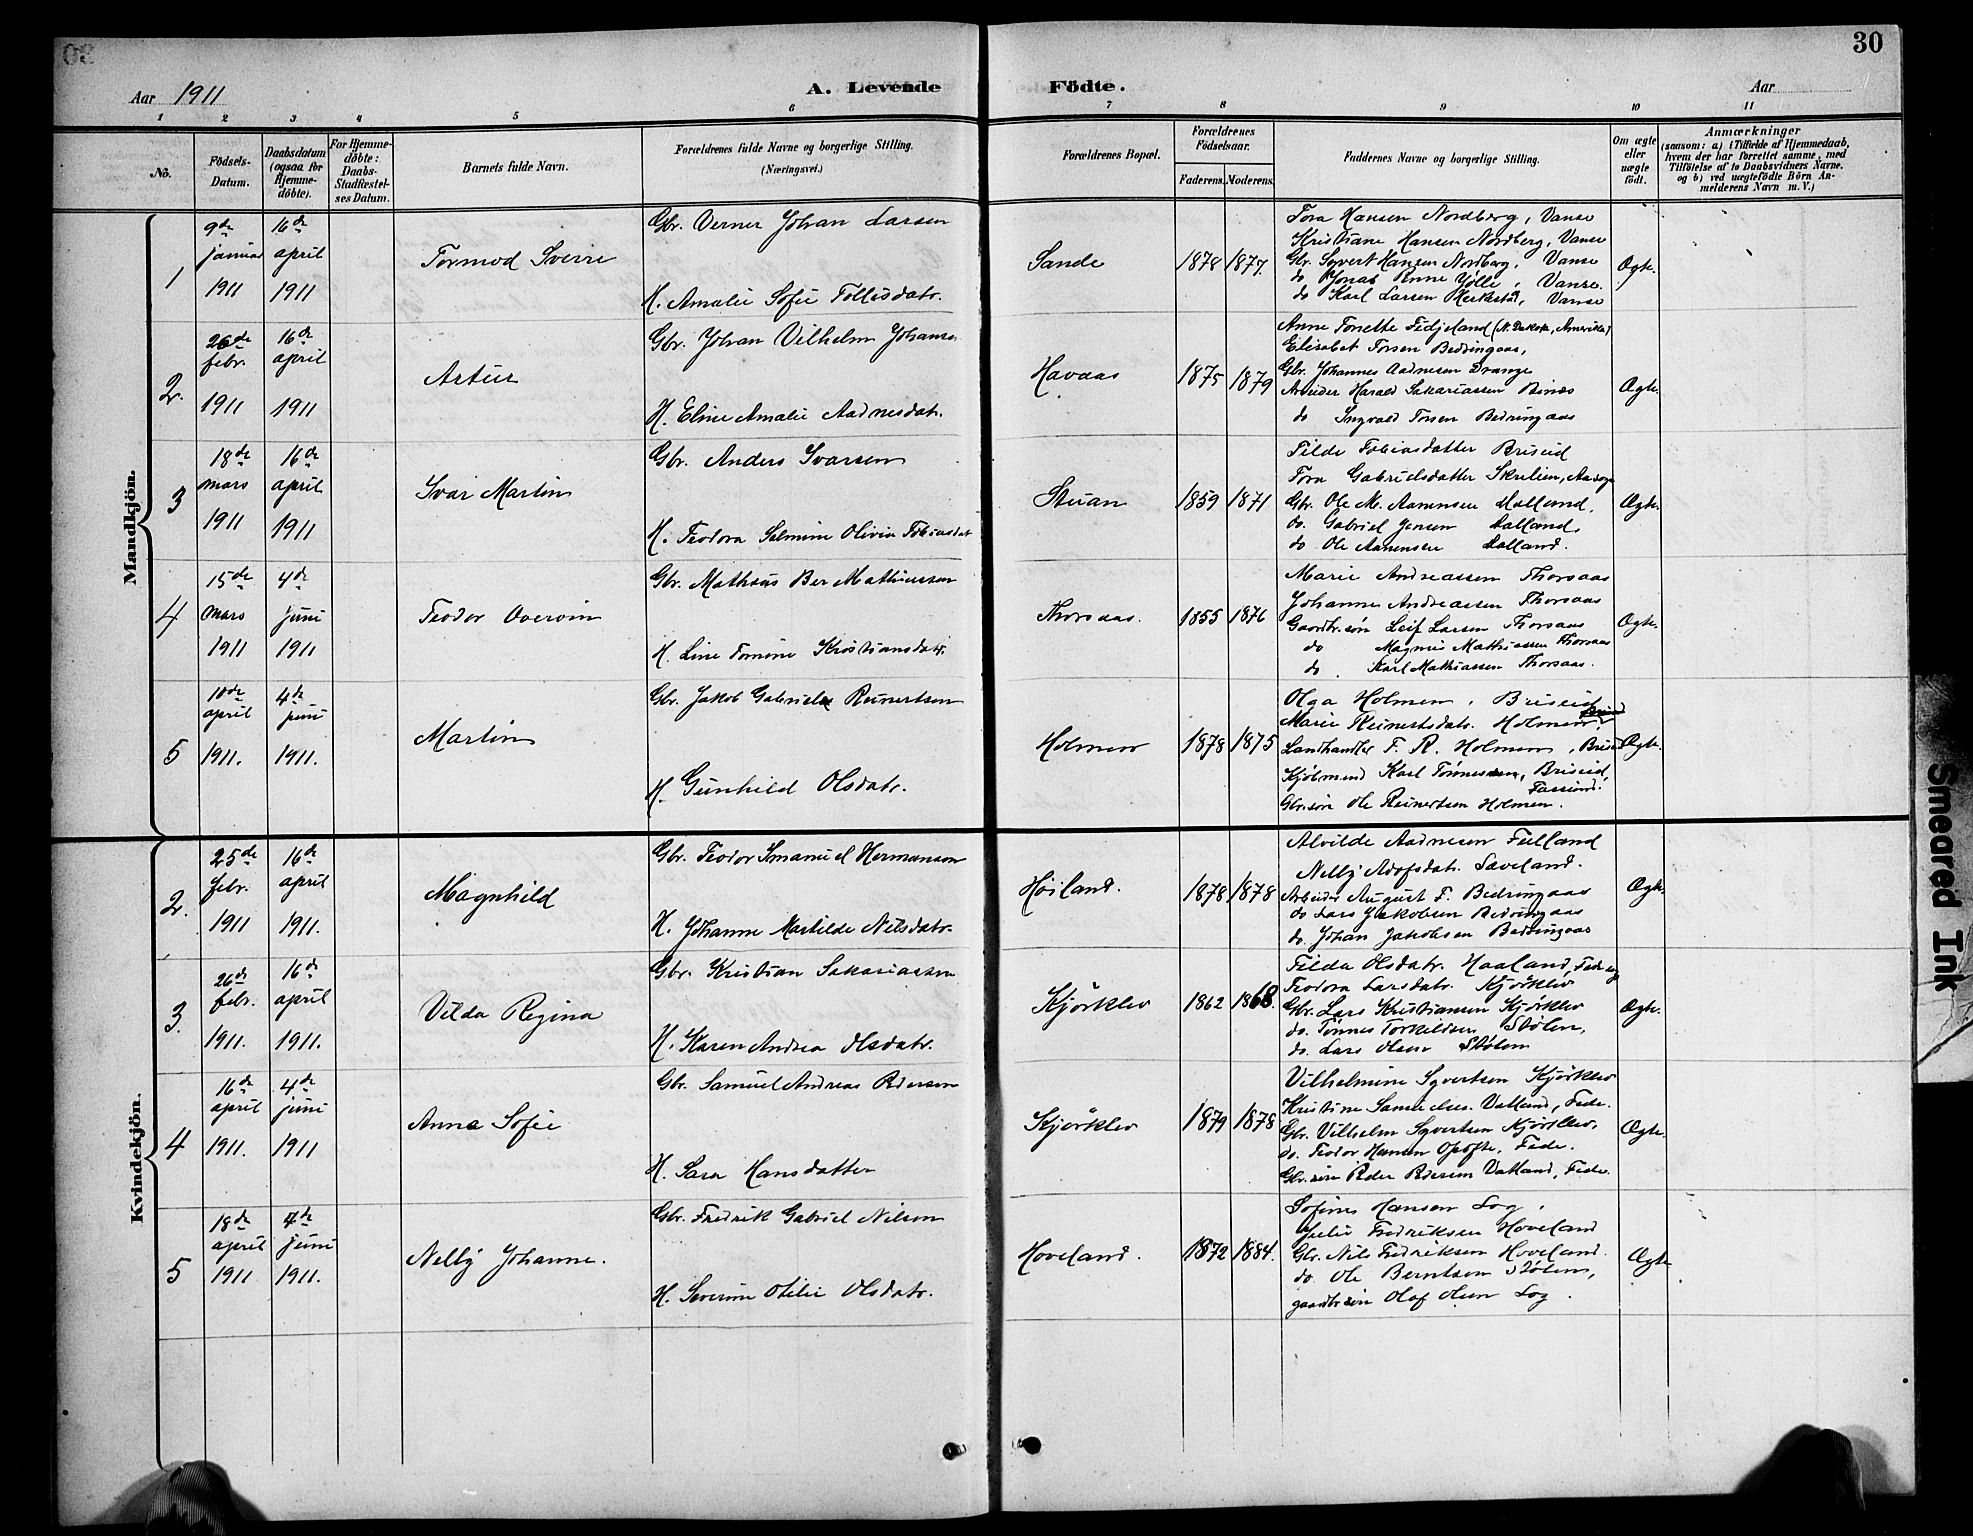 30
Aar 1911
A. Levende
Födte.
Aar
1 2 3 4 5 6 7 8 9 10 11
No.
Födsels-Datum.
Daabsdatum (ogsaa for Hjemme-döbte).
For Hjemme-döbte: Daabs-Stadfæstel-ses Datum.
Barnets fulde Navn.
Forældrenes fulde Navne og borgerlige Stilling.
(Næringsvei.)
Forældrenes Bopæl.
Forældrenes Födselsaar.
Faderens. Moderens.
Faddernes Navne og borgerlige Stilling.
Om ægte eller uægte födt.
Anmærkninger
(saasom: a) i Tilfælde af Hjemmedaab, hvem der har forrettet samme, med Tilföielse af to Daabsvidners Navne. og b) ved uægtefödte Börn An-melderens Navn m. V.)
Mandkjön.
1
9de januar 1911
16de april 1911
Tormod Sverre
Gbr. Verner Johan Larsen
H. Amalie Sofie Tollisdatr.
Sande
1878 1877.
Tora Hansen Nordberg, Vanse
Kristiane Hansen Nordberg, Vanse
Gbr. Syvert Hansen Nordberg, Vanse
do Jonas Rinne Jölle, Vanse.
do Karl Larsen, Vanse
Ægte.
2.
26de febr. 1911
16de april 1911
Artur
Gbr. Johan Vilhelm Johans.
H. Eline Amalie Aadnesdatr.
Havaas
1875 1879
Anne Tonette Fidjeland (N. Dakota, Amerika)
Elisabet Torsen Bedringaas,
Gbr. Johannes Aadnesen Drange
Arbeider Harald Sakariassen
do Ingvald Torsen Bedringaas
Ægte.
3
18de mars 1911
16de april 1911
Ivar Martin
Gbr. Anders Ivarsen
H. Teodora Selmine Olivia Tobiasdat
Stuan
1859 1871
Tilde Tobiasdatter Briseid
Tora Gabrielsdatter
Gbr. Ole M. Aanensen
do. Gabriel Jensen
do Ole Aanensen
Ægte.
4
15de mars 1911
4de juni 1911
Teodor
Gbr. Mathias Ber Mathiassen
H. Line Tomine Kristiansdatr.
Thorsaas.
1855 1876
Marie Andreassen Thorsaas
Johanne Andreassen Thorsaas
Gaardbr.søn Leif Larsen Thorsaas
do Magnus Mathiassen Thorsaas
do. Karl Mathiassen Thorsaas.
Ægte.
5
10de april 1911.
4de juni 1911.
Martin
Gbr. Jakob Gabriel Reinertsen
H. Gunhild Olsdatr.
Holmen
1878 1875
Olga Holmen, Briseid
Marie Reinertsdatr. Holmen
Landhandler F. R. Holmen, Briseid
Kjöbmand Karl Tönnessen, Briseid, Farsund.
Gbr.søn Ole Reinertsen Holmen.
Ægte.
Kvindekjön.
2.
25de febr. 1911
16de april 1911.
Magnhild
Gbr. Teodor Emanuel Hermanson
H. Johanne Martilde Nilsdatr.
Höiland.
1878 1878
Alvilde Aadnesen
Nelly Adofsdatr.
Arbeider August F. Bedringaas
do Lars Jakobsen Bedringaas
do. Johan Jakobsen Bedringaas
Ægte.
3.
26de febr. 1911.
16de april 1911.
Vilda Regina
Gbr. Kristian Sakariassen
H. Karen Andrea Olsdatr.
Kjörklev
1862 1868.
Tilda Olsdatr. Haaland,
Teodora Larsdatr. Kjörklev
Gbr. Lars Kristiansen Kjörklev
do. Tönnes Torkildsen Stölen,
do. Lars Olsen Stölen
Ægte.
4
16de april 1911.
4de juni 1911
Anna Sofie
Gbr. Samuel Andreas Pedersen
H. Sara Hansdatter
Kjörklev
1879 1878
Vilhelmine Syvertsen Kjörklev
Kristine Samuelsen Vatland, Fede.
Gbr. Vilhelm Syvertsen Kjörklev,
do. Teodor Hansen Opofte, Fede.
Gbr.søn Peder Pedersen Vatland, Fede.
Ægte.
5
18de april 1911
4de juni 1911.
Nelly Johanne.
Gbr. Fredrik Gabriel Nilsen
H. Severine Otilie Olsdatr.
Hoveland.
1872 1884.
Sofine Hansen Log,
Julie Fredriksen Hoveland
Gbr. Nils Fredriksen Hoveland.
do. Ole Berntsen Stölen,
gaardbr.søn Olaf Olsen Log.
Ægte
Smeared Ink